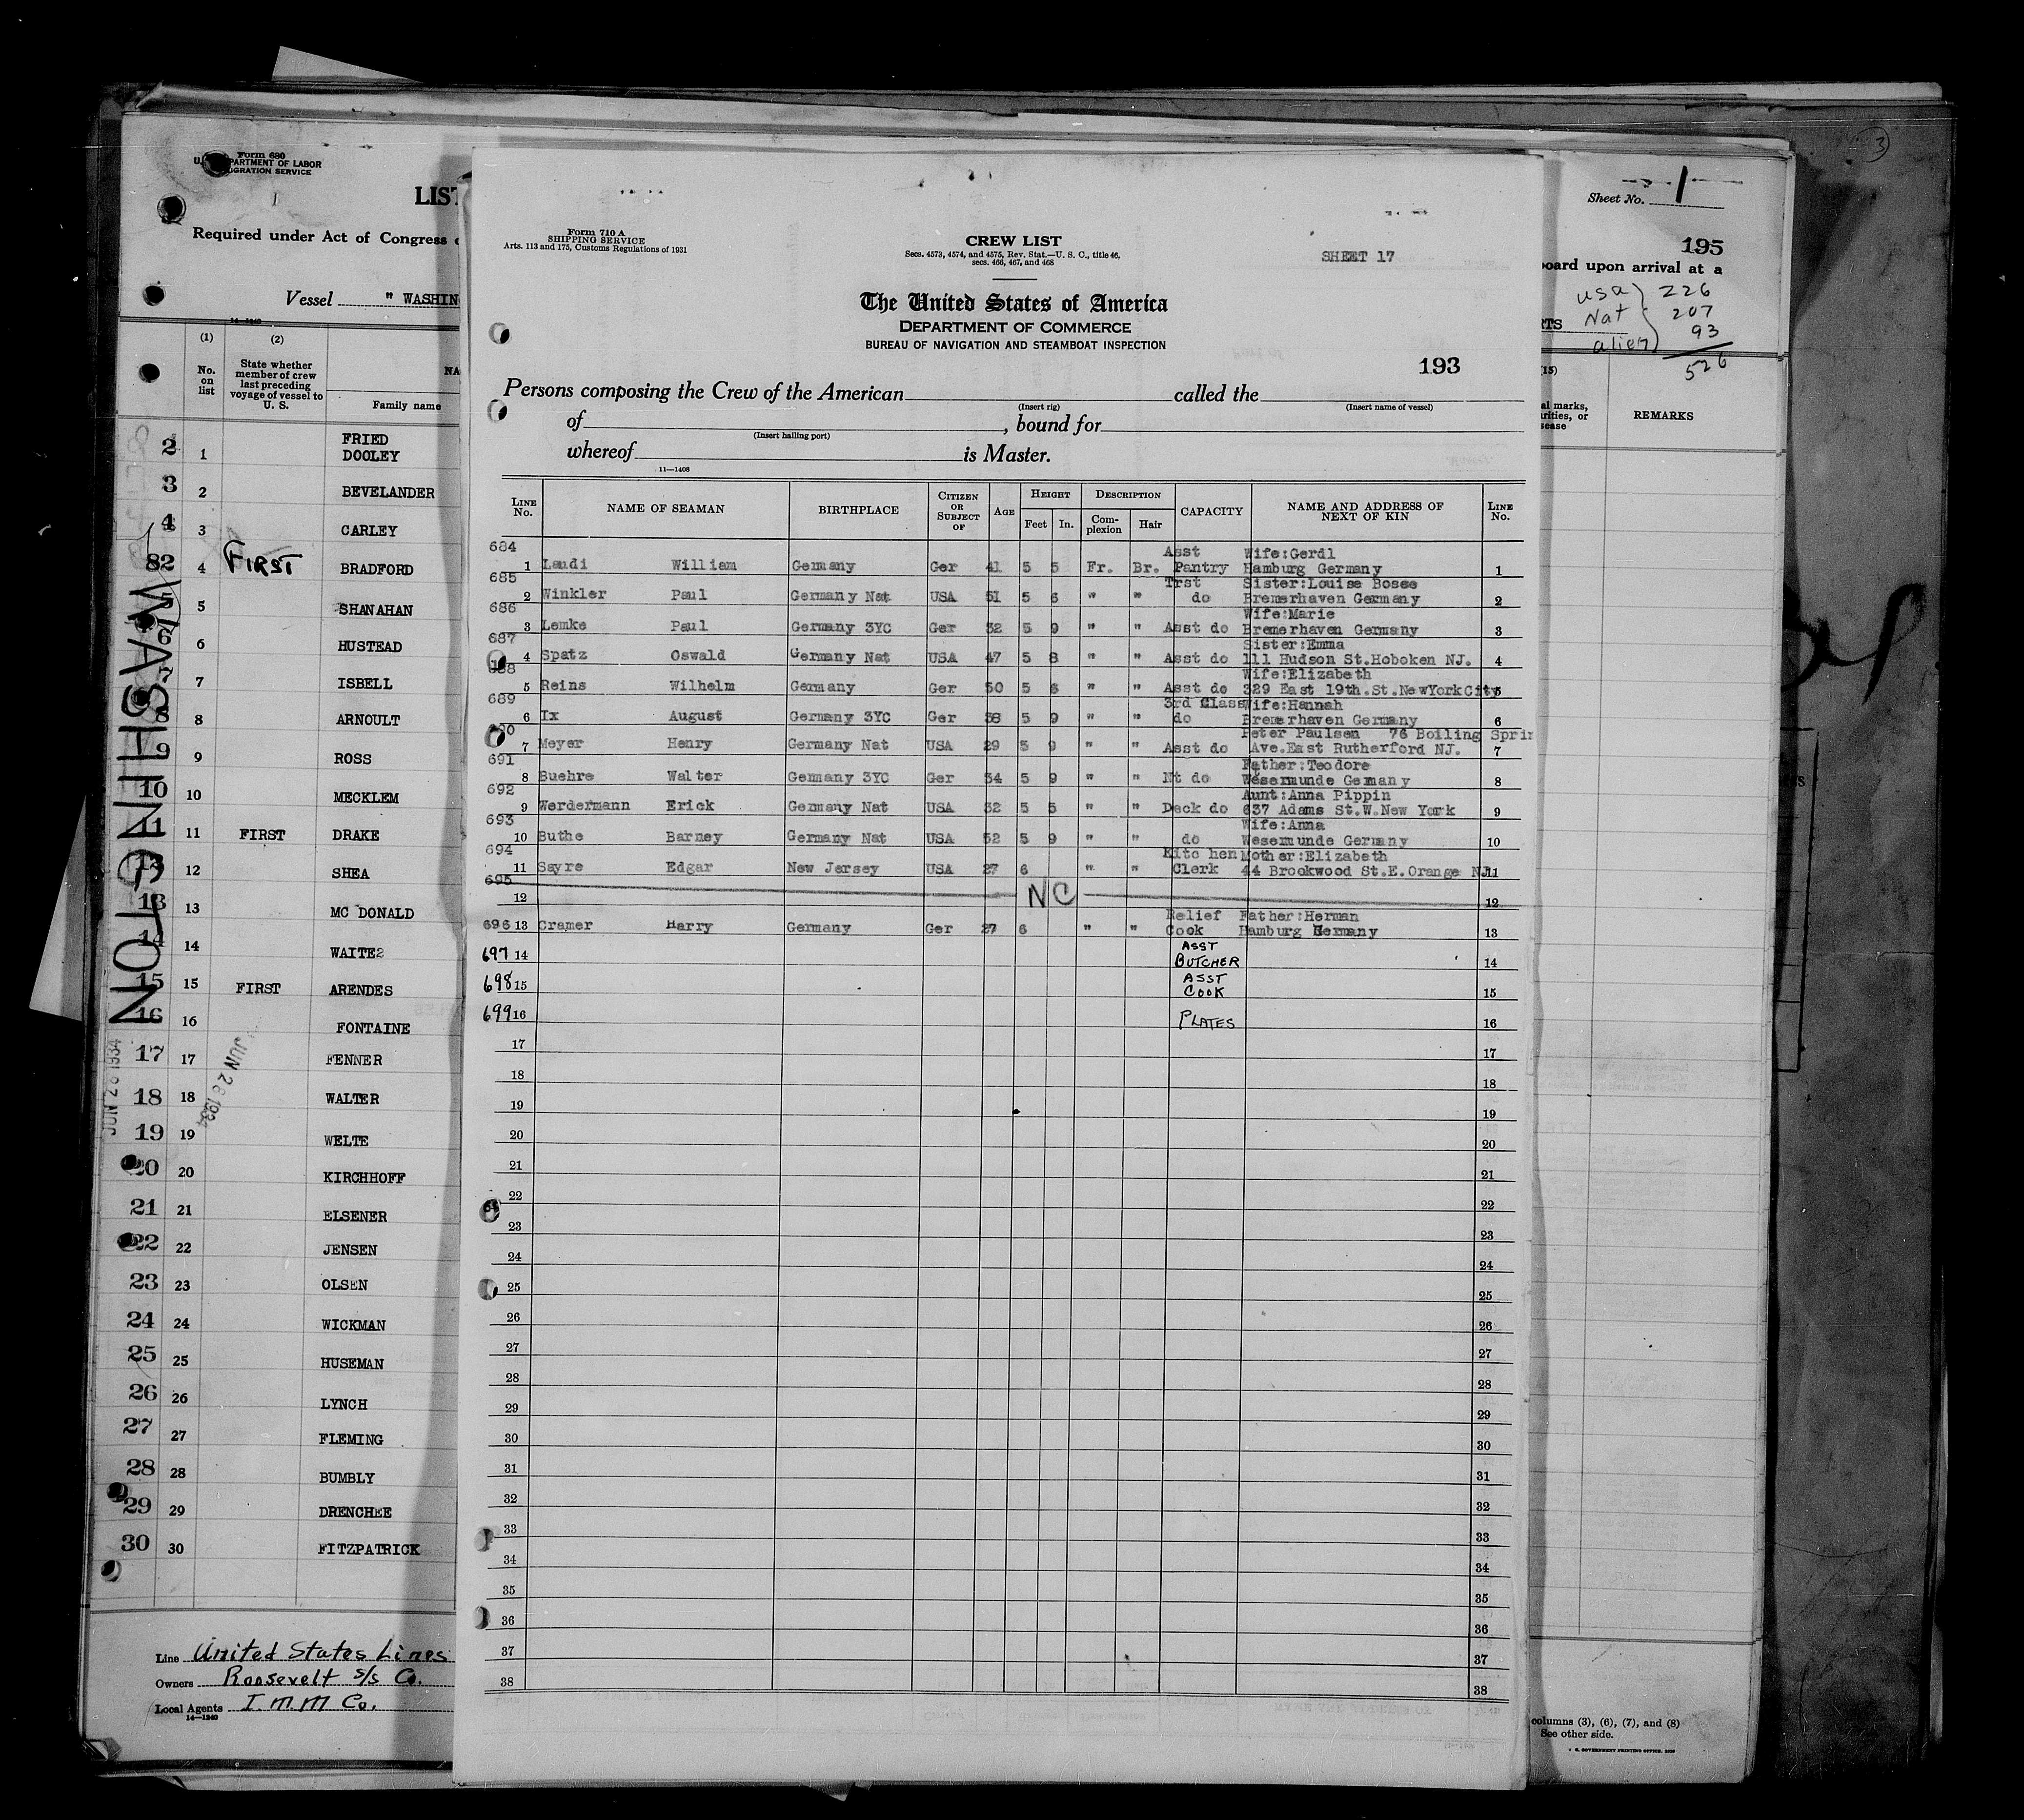 Form 680
U. S. DEPARTMENT OF LABOR
IMMIGRATION SERVICE
LIST
Required under Act of Congress
Vessel " WASHIN
14—1240
(1)
(2)
No. on list
State whether member of crew last preceding voyage of vessel to U. S.
NA
Family name
FRIED
2 1 DOOLEY
3 2 BEVELANDER
4 3 CARLEY
82 4 FIRST BRADFORD
5 SHANAHAN
6 6 HUSTEAD
7 ISBELL
8 8 ARNOULT
9 9 ROSS
10 10 MECKLEM
11 11 FIRST DRAKE
12 SHEA
13 13 MC DONALD
14 14 WAITES
15 15 FIRST ARENDES
16 16 FONTAINE
17 17 FENNER
18 18 WALTER
19 19 WELTE
20 20 KIRCHHOFF
21 21 ELSENER
22 22 JENSEN
23 23 OLSEN
24 24 WICKMAN
25 25 HUSEMAN
26 26 LYNCH
27 27 FLEMING
28 28 BUMBLY
29 29 DRENCHEE
30 30 FITZPATRICK
WASHINGTON
JUN 28 1934
JUN 28 1934
Line United States Lines
Owners Roosevelt s/s Co.
Local Agents I.M.M Co.
14—1240
Form 710 A
SHIPPING SERVICE
Arts. 113 and 175, Customs Regulations of 1931
CREW LIST
Secs. 4573, 4574, and 4575, Rev. Stat.—U. S. C., title 46,
secs. 466, 467, and 468
SHEET 17
The United States of America
DEPARTMENT OF COMMERCE
BUREAU OF NAVIGATION AND STEAMBOAT INSPECTION
193
Persons composing the Crew of the American called the
(Insert rig) (Insert name of vessel)
of , bound for
(Insert hailing port)
whereof is Master.
11—1408
LINE No. NAME OF SEAMAN BIRTHPLACE CITIZEN OR SUBJECT OF AGE HEIGHT Feet In. DESCRIPTION Complexion Hair CAPACITY NAME AND ADDRESS OF NEXT OF KIN LINE No.
684 Asst Wife:Gerdl
1 Laudi William Germany Ger 41 5 5 Fr. Br. Pantry Hamburg Germany 1
685 Trst Sister:Louise Bosee
2 Winkler Paul Germany Nat USA 51 5 6 " " do Bremerhaven Germany 2
686 Wife:Marie
3 Lemke Paul Germany 3YC Ger 32 5 9 " " Asst do Bremerhaven Germany 3
687 Sister:Emma
4 Spatz Oswald Germany Nat USA 47 5 8 " " Asst do 111 Hudson St.Hoboken NJ. 4
688 Wife:Elizabeth
5 Reins Wilhelm Germany Ger 50 5 6 " " Asst do 329 East 19th.St.NewYorkCity 5
689 3rd Class Wife:Hannah
6 Ix August Germany 3YC Ger 38 5 9 " " do Bremerhaven Germany 6
690 Peter Paulsen 76 Boiling Sprin
7 Meyer Henry Germany Nat USA 29 5 9 " " Asst do Ave.East Rutherford NJ. 7
691 Father:Teodore
8 Buehre Walter Germany 3YC Ger 34 5 9 " " Nt do Wesermunde Gemany 8
692 Aunt:Anna Pippin
9 Werdermann Erick Germany Nat USA 32 5 5 " " Deck do 637 Adams St.W.New York 9
693 Wife:Anna
10 Buthe Barney Germany Nat USA 52 5 9 " " do Wesemunde Germany 10
694 Kitchen Mother:Elizabeth
11 Sayre Edgar New Jersey USA 27 6 " " Clerk 44 Brookwood St.E.Orange NJ 11
695
12 NC 12
Relief Father:Herman
696 13 Cramer Harry Germany Ger 27 6 " " Cook Hamburg Germany 13
697 14 ASST BUTCHER 14
698 15 ASST COOK 15
699 16 PLATES 16
17 17
18 18
19 19
20 20
21 21
22 22
23 23
24 24
25 25
26 26
27 27
28 28
29 29
30 30
31 31
32 32
33 33
34 34
35 35
36 36
37 37
38 38
3
Sheet No. 1
195
board upon arrival at a
USA 226
Nat 207
alien 93
526
REMARKS
columns (3), (6), (7), and (8)
See other side.
U. S. GOVERNMENT PRINTING OFFICE